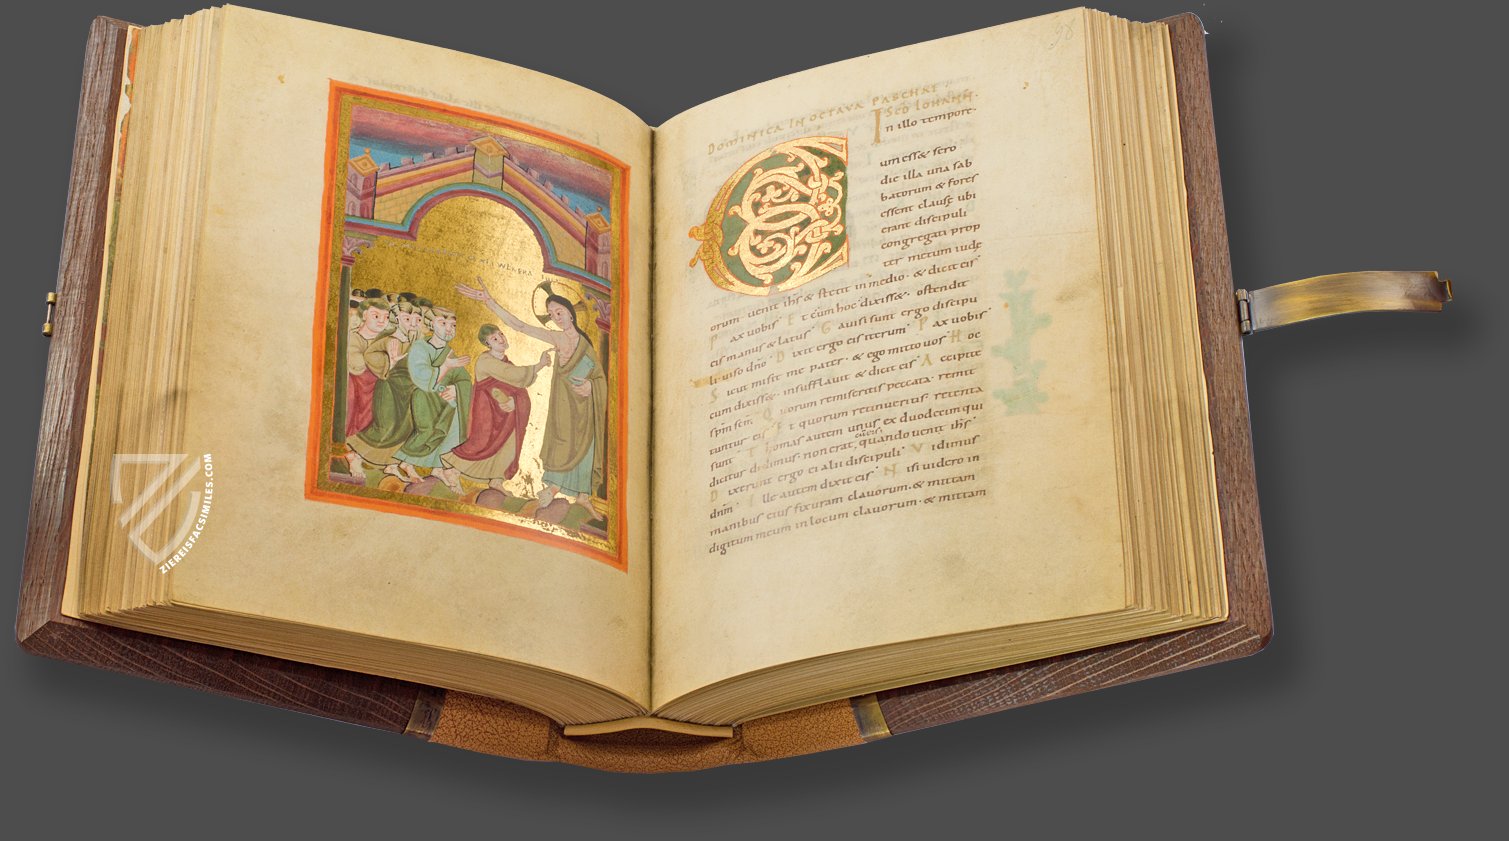 98
DOMINICA IN OCTAVA PASCHAE.
SCD IOHANN
In illo tempore.
um esset sero
die illa una sab
batorum & fores
essent clausę ubi
erant discipuli
congregati prop
ter metum iudę
orum. venit ihs & stetit in medio. & dicit eis
Pax vobis. Et cum hoc dixisset. ostendit
eis manus & latus. Gavisi sunt ergo discipu
li. viso dno. Dixit ergo eis iterum. Pax vobis.
Sicut misit me pater. & ego mitto vos. Hoc
cum dixisset. insufflavit & dicit eis. Accipite
spm scm. Quorum remiseritis peccata. remit
tuntur eis. Et quorum retinueritis. retenta
sunt. Thomas autem unus ex duodecim qui
dicitur didimus. non erat cum eis quando venit ihs.
Dixerunt ergo ei alii discipuli. Vidimus
dnm. Ille autem dixit eis. Nisi videro in
manibus eius fixuram clavorum. & mittam
digitum meum in locum clavorum. & mittam
ZIEREISFACSIMILES.COM